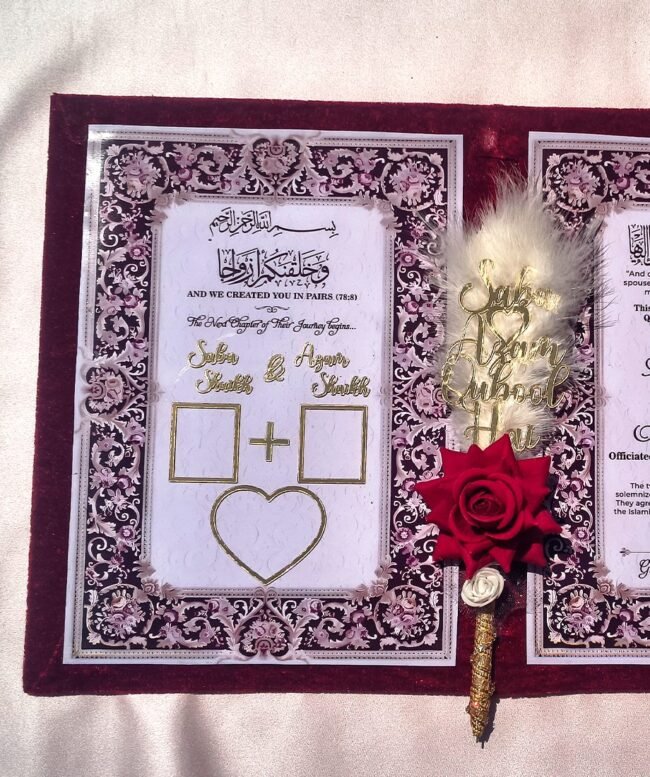 بِسْمِ اللَّهِ الرَّحْمَٰنِ الرَّحِيمِ
وَخَلَقْنَاكُمْ أَزْوَاجًا
AND WE CREATED YOU IN PAIRS (78:8)
The Next Chapter of Their Journey begins...
Saba & Azam
Shaikh Shaikh
+
Saba
Azam
Qubool
Hai
"And o
spouse
m
This
Q
Officiated
The
solemnize
They agre
the Islami